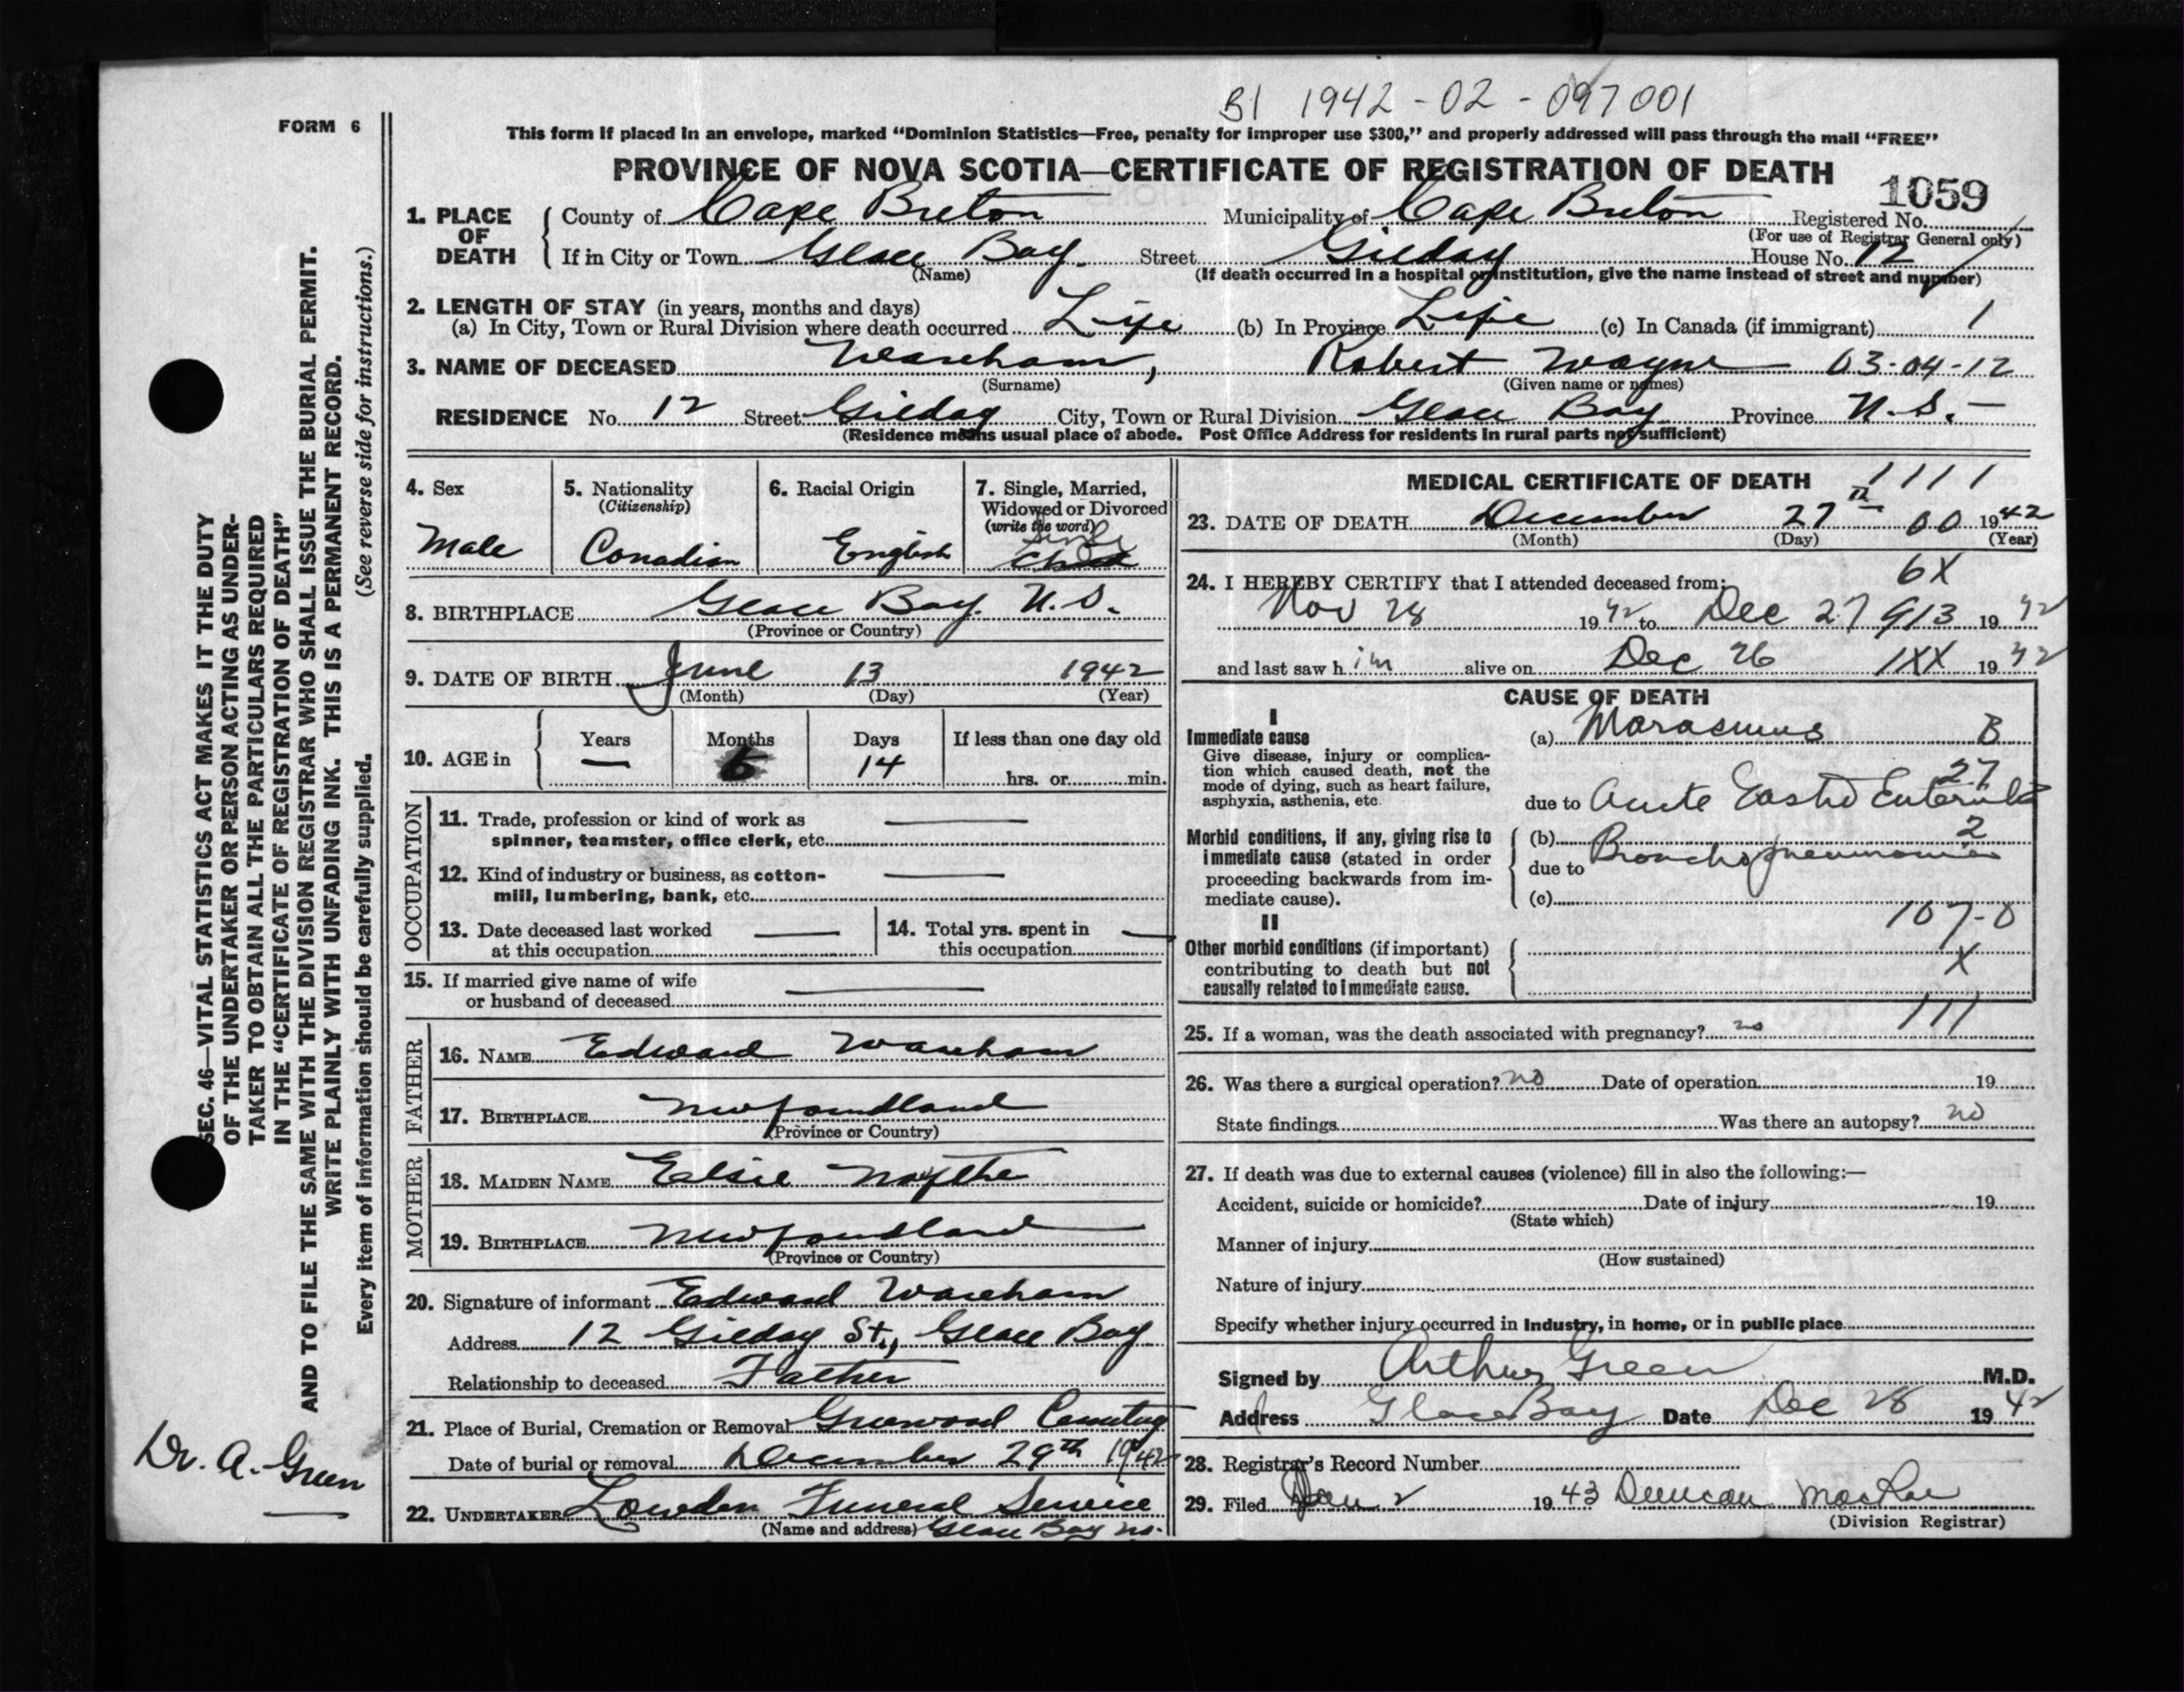 B1 1942-02-097001
FORM 6
This form if placed in an envelope, marked “Dominion Statistics—Free, penalty for improper use $300,” and properly addressed will pass through the mail “FREE”
PROVINCE OF NOVA SCOTIA—CERTIFICATE OF REGISTRATION OF DEATH
1059
1. PLACE OF DEATH County of Cape Breton Municipality of Cape Breton Registered No.
(For use of Registrar General only)
If in City or Town Glace Bay. Street Gilday House No. 12
(Name) (If death occurred in a hospital or institution, give the name instead of street and number)
2. LENGTH OF STAY (in years, months and days)
(a) In City, Town or Rural Division where death occurred Life (b) In Province Life (c) In Canada (if immigrant) 1
3. NAME OF DECEASED Wareham, Robert Wayne 03-04-12
(Surname) (Given name or names)
RESIDENCE No. 12 Street Gilday City, Town or Rural Division Glace Bay Province N.S.-
(Residence means usual place of abode. Post Office Address for residents in rural parts not sufficient)
4. Sex 5. Nationality 6. Racial Origin 7. Single, Married,
(Citizenship) Widowed or Divorced
(write the word)
Single
Male Canadian English Child
8. BIRTHPLACE Glace Bay. N.S.
(Province or Country)
9. DATE OF BIRTH June 13 1942
(Month) (Day) (Year)
10. AGE in Years Months Days If less than one day old
— 6 14 hrs. or min.
OCCUPATION
11. Trade, profession or kind of work as
spinner, teamster, office clerk, etc. —
12. Kind of industry or business, as cotton-
mill, lumbering, bank, etc. —
13. Date deceased last worked — 14. Total yrs. spent in —
at this occupation this occupation
15. If married give name of wife
or husband of deceased —
FATHER
16. NAME Edward Wareham
17. BIRTHPLACE Newfoundland
(Province or Country)
MOTHER
18. MAIDEN NAME
19. BIRTHPLACE Newfoundland
(Province or Country)
20. Signature of informant Edward Wareham
Address 12 Gilday St., Glace Bay
Relationship to deceased Father
21. Place of Burial, Cremation or Removal Greenwood Cemetery
Date of burial or removal December 29th 1942
22. UNDERTAKER Lowden Funeral Service
(Name and address) Glace Bay N.S.
MEDICAL CERTIFICATE OF DEATH 1111
23. DATE OF DEATH December 27th 00 1942
(Month) (Day) (Year)
24. I HEREBY CERTIFY that I attended deceased from: 6X
Nov 28 1942 to Dec 27 913 1942
and last saw him alive on Dec 26 1XX 1942
CAUSE OF DEATH
I
Immediate cause (a) Marasmus B
Give disease, injury or complica-
tion which caused death, not the
mode of dying, such as heart failure,
asphyxia, asthenia, etc.
27
due to Acute Gastro Enteritis
Morbid conditions, if any, giving rise to (b) 2
immediate cause (stated in order
proceeding backwards from im-
mediate cause).
due to Bronchopneumonia
(c)
107-0
II
Other morbid conditions (if important)
contributing to death but not
causally related to immediate cause.
X
25. If a woman, was the death associated with pregnancy? no 111
26. Was there a surgical operation? no Date of operation 19
State findings Was there an autopsy? no
27. If death was due to external causes (violence) fill in also the following:—
Accident, suicide or homicide? Date of injury 19
(State which)
Manner of injury
(How sustained)
Nature of injury
Specify whether injury occurred in Industry, in home, or in public place
Signed by Arthur Green M.D.
Address Glace Bay Date Dec 28 1942
28. Registrar's Record Number
29. Filed Jan 2 1943 Duncan MacRae
(Division Registrar)
SEC. 46—VITAL STATISTICS ACT MAKES IT THE DUTY
OF THE UNDERTAKER OR PERSON ACTING AS UNDER-
TAKER TO OBTAIN ALL THE PARTICULARS REQUIRED
IN THE “CERTIFICATE OF REGISTRATION OF DEATH”
AND TO FILE THE SAME WITH THE DIVISION REGISTRAR WHO SHALL ISSUE THE BURIAL PERMIT.
WRITE PLAINLY WITH UNFADING INK. THIS IS A PERMANENT RECORD.
Every item of information should be carefully supplied. (See reverse side for instructions.)
Dr. A. Green